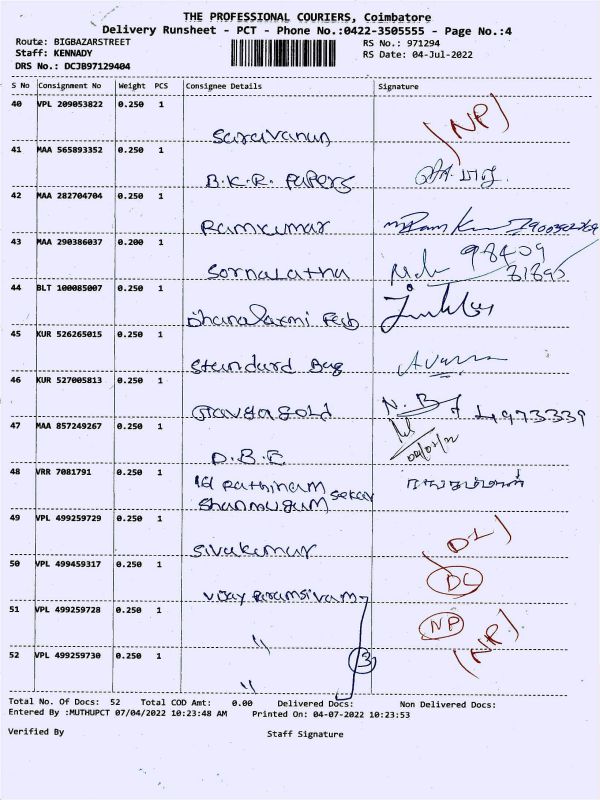 THE PROFESSIONAL COURIERS, Coimbatore
Delivery Runsheet - PCT - Phone No.:0422-3505555 - Page No.:4
Route: BIGBAZARSTREET RS No.: 971294
Staff: KENNADY RS Date: 04-Jul-2022
DRS No.: DCJB97129404
S No Consignment No Weight PCS Consignee Details Signature
40 VPL 209053822 0.250 1
Saravanan (NP)
41 MAA 565893352 0.250 1
B.K.R. Papers
42 MAA 282704704 0.250 1
Ramkumar
43 MAA 290386037 0.200 1
Sornalatha 98409
44 BLT 100085007 0.250 1
Dhanalaxmi Fab
45 KUR 526265015 0.250 1
Standard Bag
46 KUR 527005813 0.250 1
N.B
47 MAA 857249267 0.250 1
D.B.E
48 VRR 7081791 0.250 1
Rathinam Sekar
Shanmugam
49 VPL 499259729 0.250 1
Sivakumar
50 VPL 499459317 0.250 1 DC
Vijay Paramsivam
51 VPL 499259728 0.250 1 NP
" (NP)
52 VPL 499259730 0.250 1 3
"
Total No. Of Docs: 52 Total COD Amt: 0.00 Delivered Docs: Non Delivered Docs:
Entered By :MUTHUPCT 07/04/2022 10:23:48 AM Printed On: 04-07-2022 10:23:53
Verified By Staff Signature